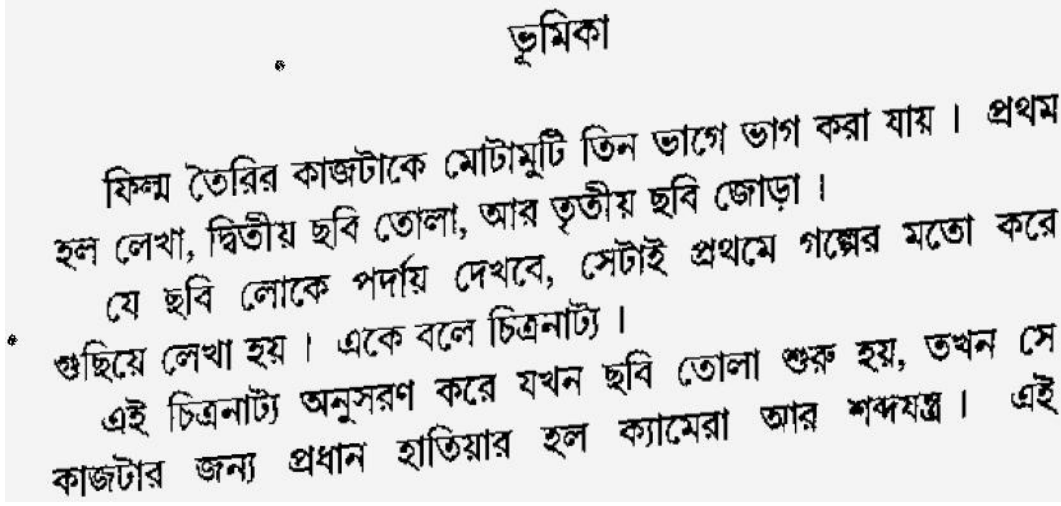 ভূমিকা
ফিল্ম তৈরির কাজটাকে মোটামুটি তিন ভাগে ভাগ করা যায় । প্রথম
হল লেখা, দ্বিতীয় ছবি তোলা, আর তৃতীয় ছবি জোড়া ।
যে ছবি লোকে পর্দায় দেখবে, সেটাই প্রথমে গল্পের মতো করে
গুছিয়ে লেখা হয় । একে বলে চিত্রনাট্য ।
এই চিত্রনাট্য অনুসরণ করে যখন ছবি তোলা শুরু হয়, তখন সে
কাজটার জন্য প্রধান হাতিয়ার হল ক্যামেরা আর শব্দযন্ত্র । এই